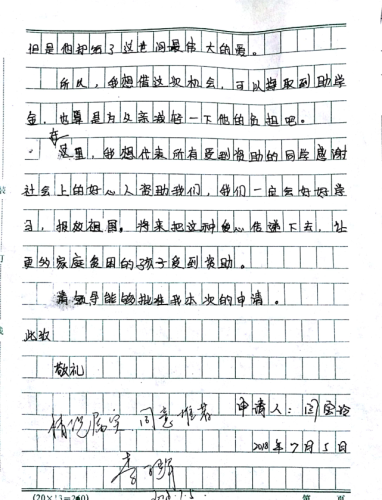 但是他却给了这世间最伟大的爱。
所以，我想借这次机会，可以换取到助学
金，也算是为父亲减轻一下他的负担吧。
在这里，我想代表所有受到资助的同学感谢
社会上的好心人资助我们，我们一定会好好学
习，报效祖国。将来把这种爱心传递下去，让
更多家庭贫困的孩子受到资助。
请领导能够批准我本次的申请。
此致
敬礼
情况属实 同意推荐 申请人：
2018年7月5日
(20×13=260) 第 页